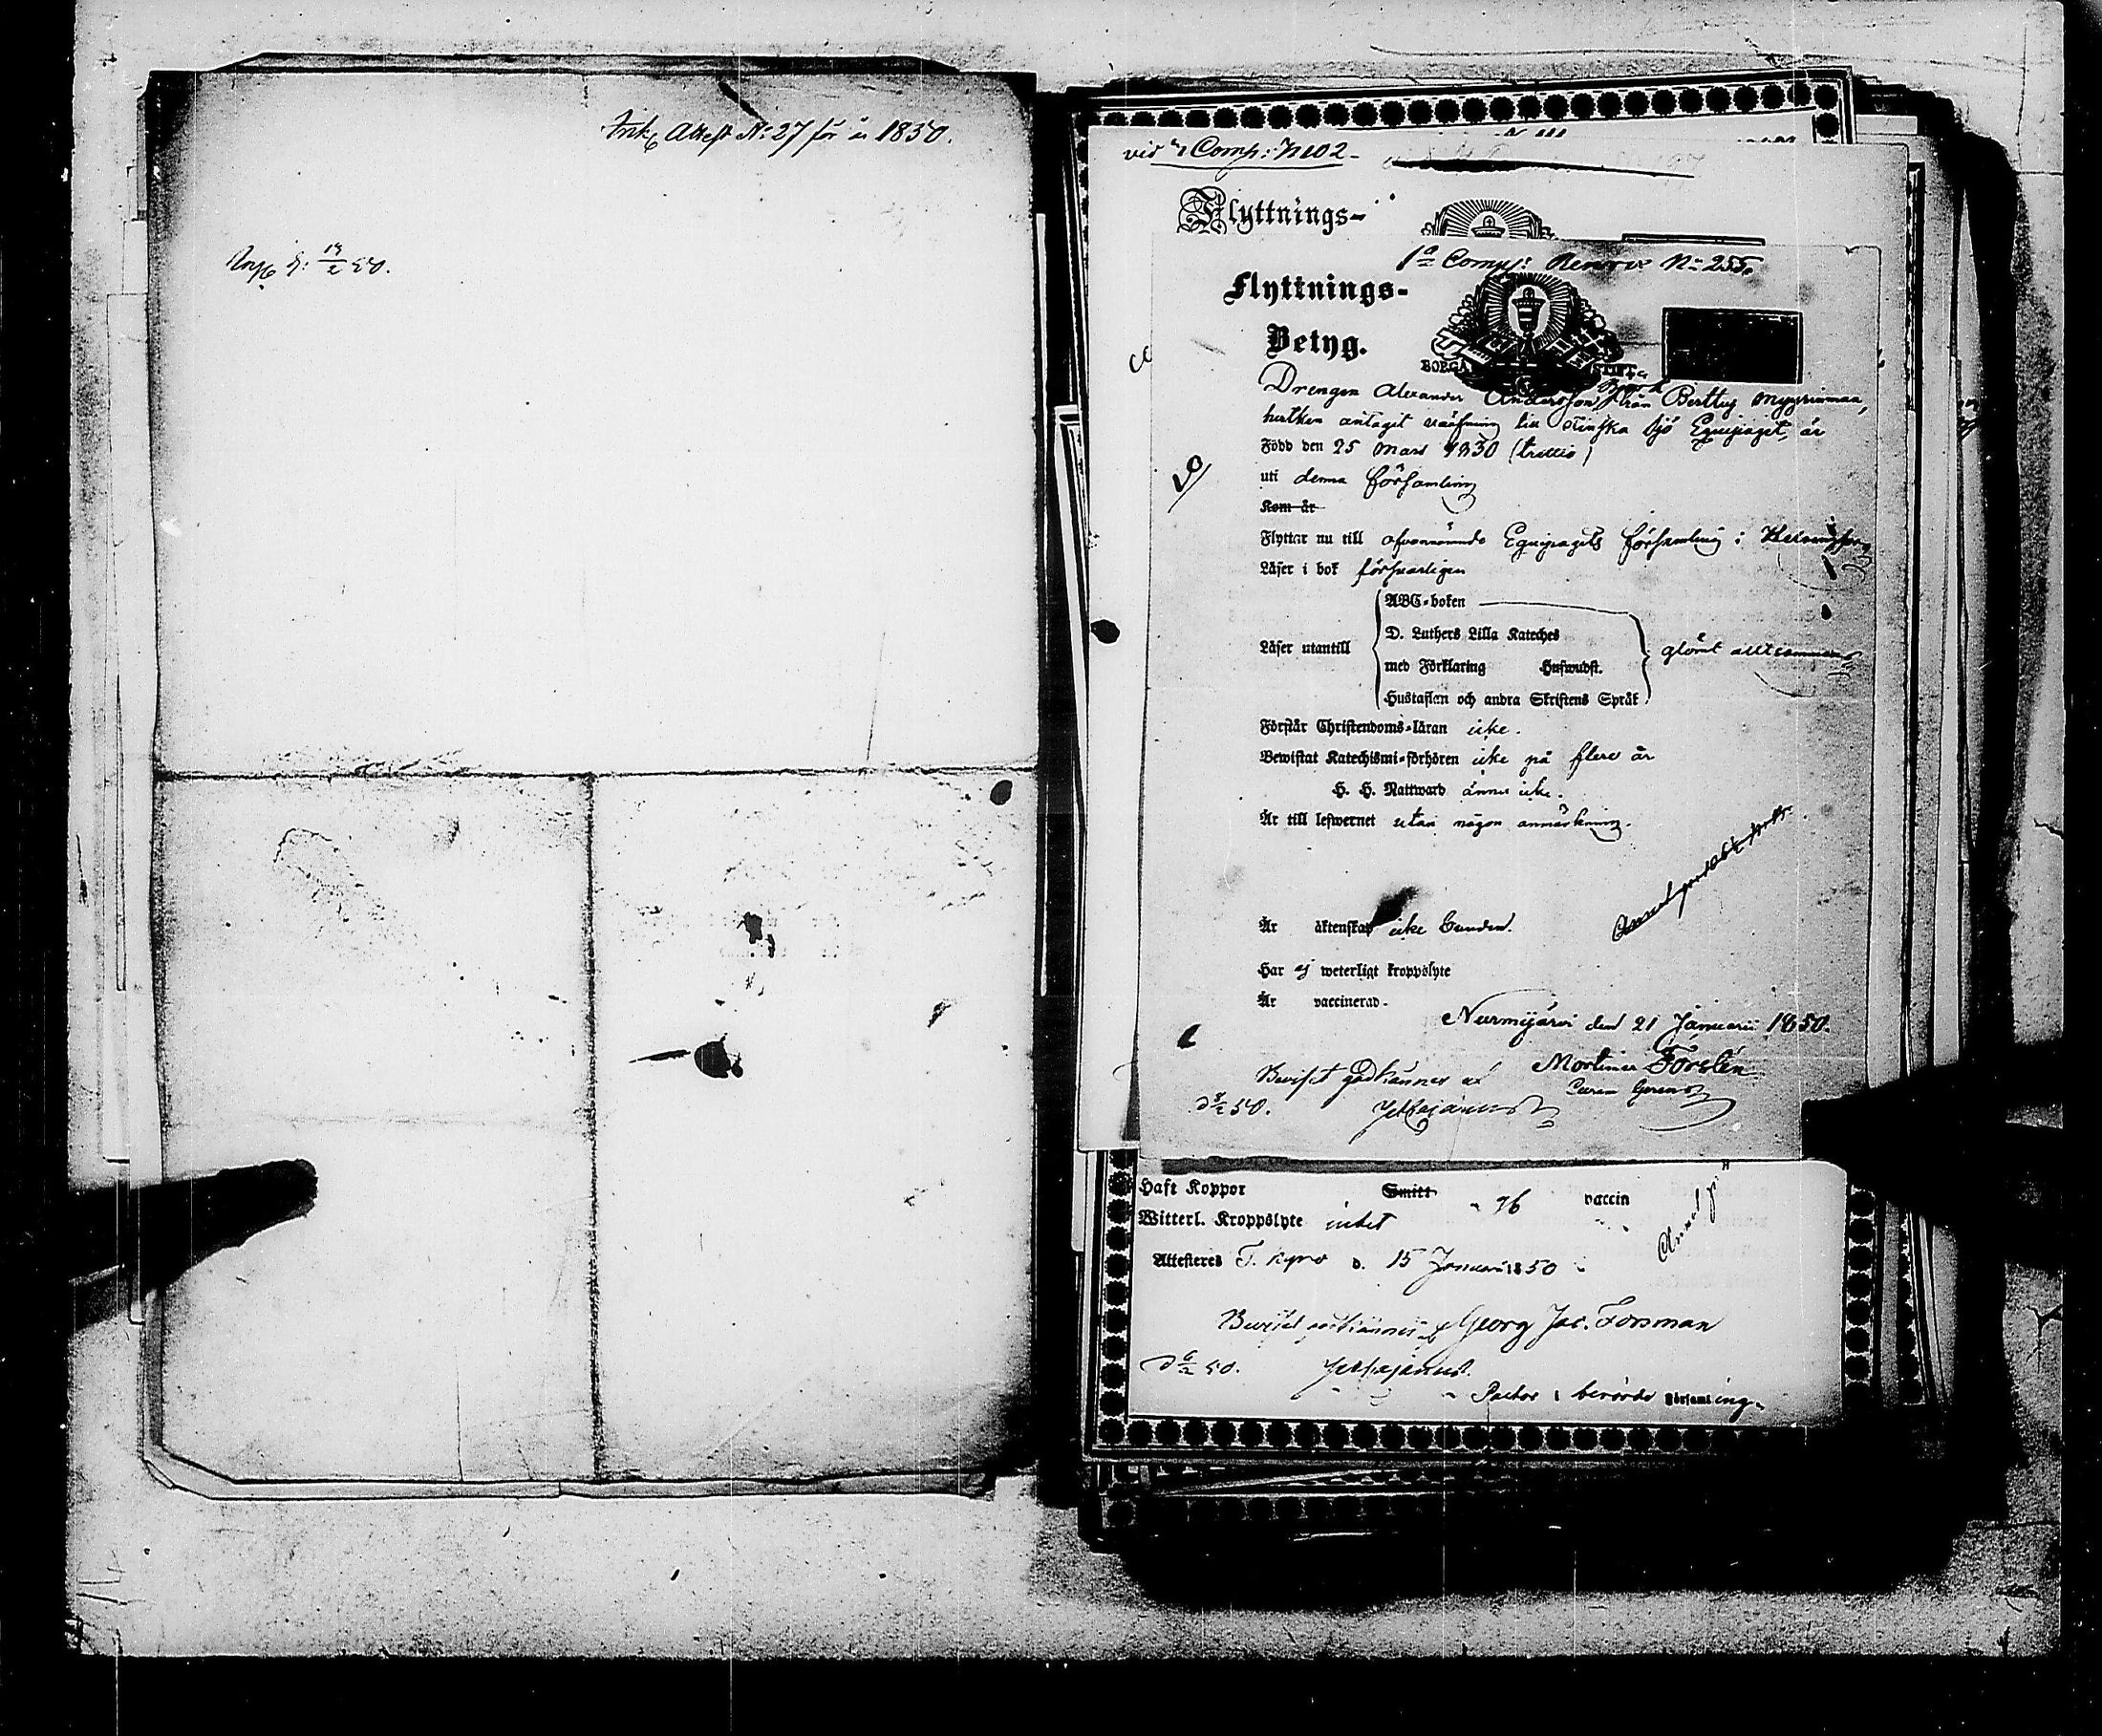 Ink. Attest No: 27 för år 1850.
d: 19/2 50.
vid Comp: No 2
Flyttnings-
1a Comp: No 255
Flyttnings-
Betyg.
BORGÅ STIFT
Drengen Alexander Andersson från Berttuj Myyrinmaa,
hvilken antagit värfning till Finska Sjö Equipaget, är
Född den 25 Mars 1830 (trettio)
uti denna församling
Kom år
Flyttar nu till ofvannämnde Equipagets församling i Helsingfors
Läser i bok försvarligen
ABC-boken
D. Luthers Lilla Kateches
Läser utantill
med Förklaring Hufwudst.
glömt alltsammans
Hustaflan och andra Skriftens Språk
Förstår Christendoms-läran icke.
Bewistat Katechismi-förhören icke på flere år
H. H. Nattward ännu icke.
Är till lefwernet utan någon anmärkning.
Är äktenskap icke bunden.
Har ej weterligt kroppslyte
Är vaccinerad.
Nurmijärvi den 21 Januarii 1850.
Beviset godkännes af Mortimer Forstén
d 8/2 50.
Haft Koppor Smitt vaccin
Witterl. Kroppslyte intet
Attesteres T. Kyro d. 15 Januari 1850
Beviset godkännes af Georg Jac. Forsman
d 6/2 50.
Pastor i berörde Församling.